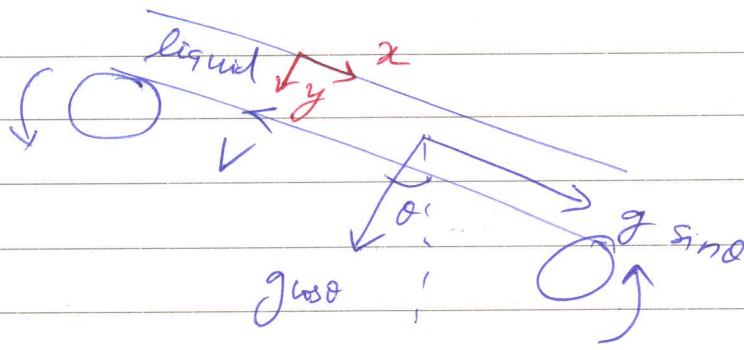 liquid
x
y
V
θ
g sinθ
gcosθ